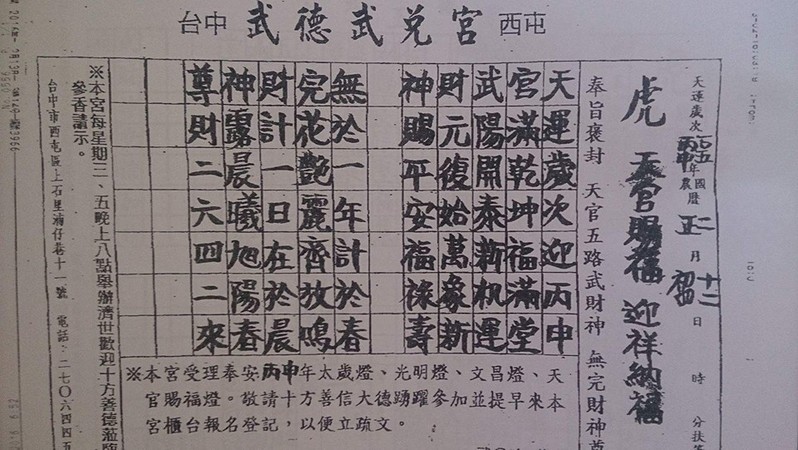 台中 武德武兌宮 西屯
天運歲次丙申 一〇五年 國曆 農曆 正 月 日 時 分扶
虎 天官賜福 迎祥納福
奉旨褒封 天官五路武財神 無完財神尊
天運歲次迎丙申
宮滿乾坤福滿堂
武陽開泰新机運
財元復始萬象新
神賜平安福祿壽
無於一年計於春
完花艷麗齊放鳴
財計一日在於晨
神露晨曦旭陽春
尊財二六四二來
※本宮受理奉安丙申年太歲燈、光明燈、文昌燈、天
官賜福燈。敬請十方善信大德踴躍參加並提早來本
宮櫃台報名登記，以便立疏文。
※本宮每星期二、五晚上八點舉辦濟世歡迎十方善德蒞臨
參香請示。
台中市西屯區上石里湳仔巷十一號 電話：二七〇六四四五